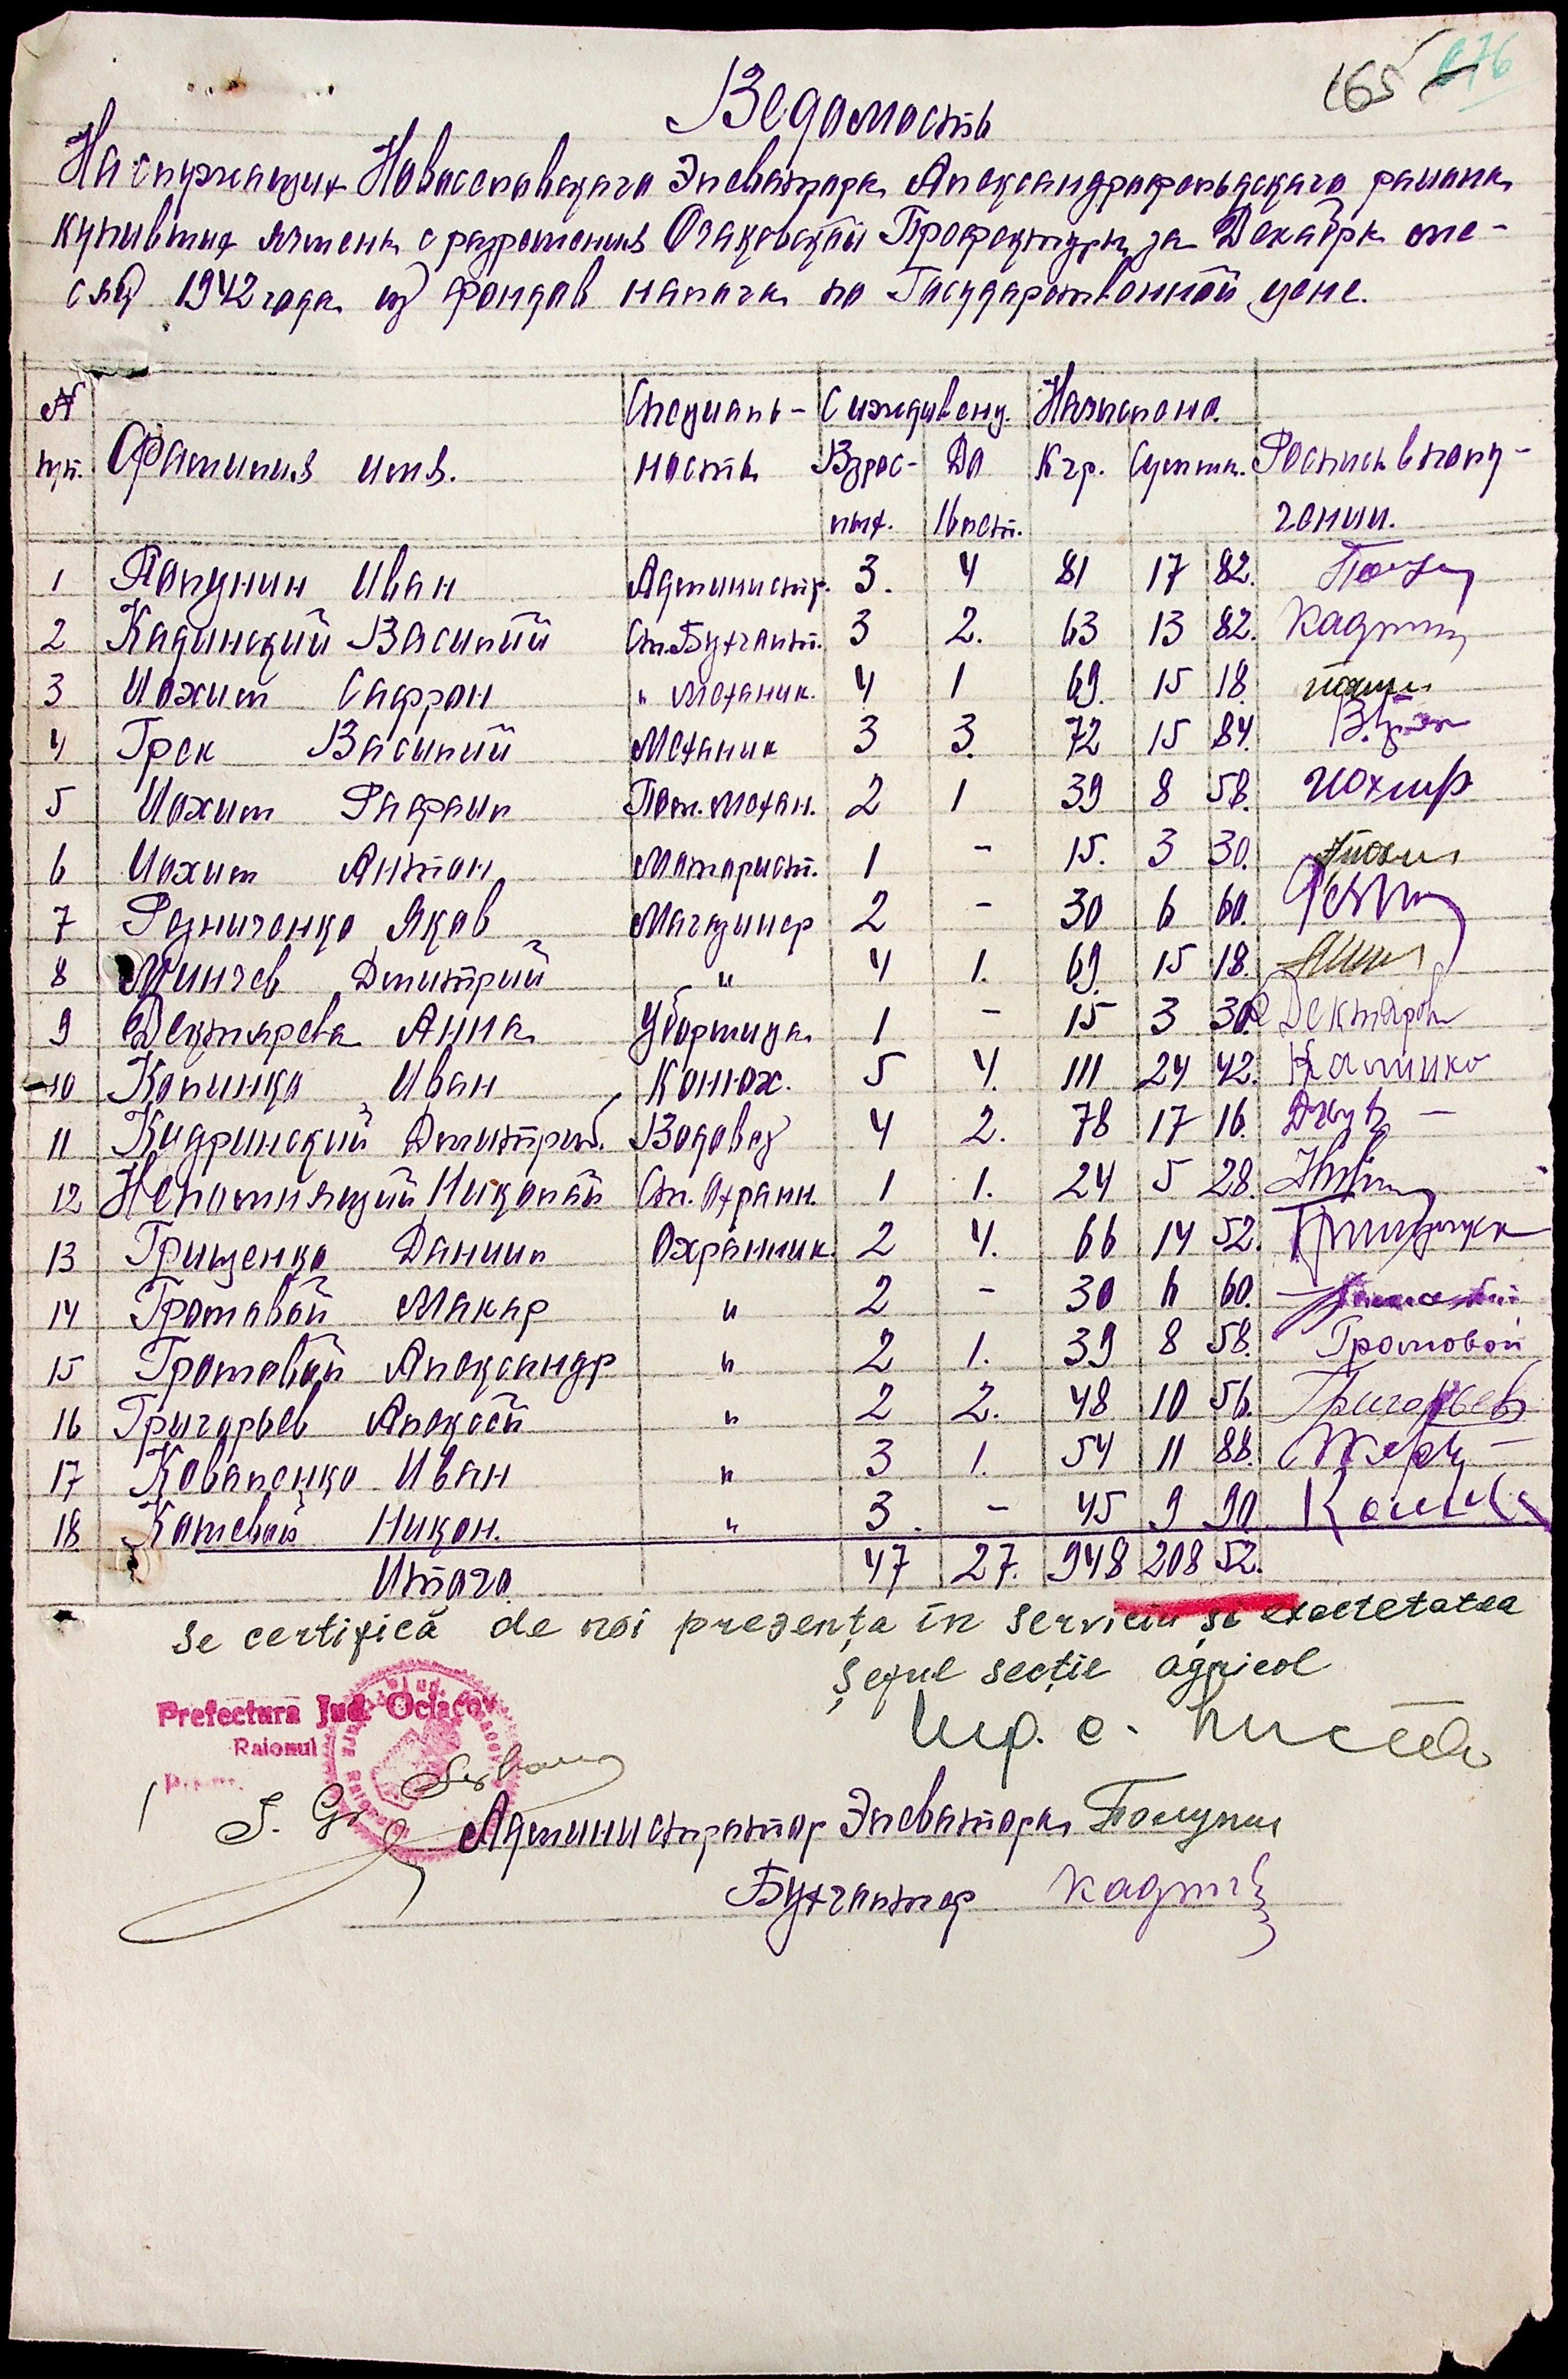 165 176
Ведомость
На служащих Новоселовского Элеватора Александрофельдского района
купивших ячмень с разрешения Очаковской Префектуры за Декабрь ме-
сяц 1942 года из фондов налога по Государственной цене.
№ Специаль- С иждивенц. Начислено.
п.п. Фамилия имя. ность Взрос- До Кгр. Сумма. Роспись в полу-
лых. 16 лет. чении.
1 Полунин Иван Администр. 3. 4 81 17 82.
2 Кадинский Василий Ст. Бухгалт. 3 2. 63 13 82.
3 Иохим Сафрон " Механик. 4 1 69. 15 18.
4 Грек Василий Механик 3 3. 72 15 84.
5 Иохим Рафаил Пом. Механ. 2 1 39 8 58.
6 Иохим Антон Моторист. 1 – 15. 3 30.
7 Резниченко Яков Магазинер 2 – 30 6 60.
8 Минчев Дмитрий " 4 1. 69. 15 18.
9 Дектярева Анна Уборщица 1 – 15 3 30. Дектярева
10 Калинко Иван Конюх. 5 4. 111 24 42. Калинко
11 Кидринский Дмитрий. Водовоз 4 2. 78 17 16.
12 Непомнящий Николай Ст. Охранн. 1 1. 24 5 28.
13 Грищенко Даниил Охранник. 2 4. 66 14 52.
14 Громовой Макар " 2 – 30 6 60.
15 Громовой Александр " 2 1. 39 8 58. Громовой
16 Григорьев Алексей " 2 2. 48 10 56. Григорьев
17 Коваленко Иван " 3 1. 54 11 88.
18. Кошевой Никон. " 3. – 45 9 90
Итого 47 27. 948 208 52.
se certifică de noi prezența în serviciu și exactetatea
Șeful secție agricol
Prefectura Jud. Ociacov
Raionul
Администратор Элеватора Полунин
Бухгалтер